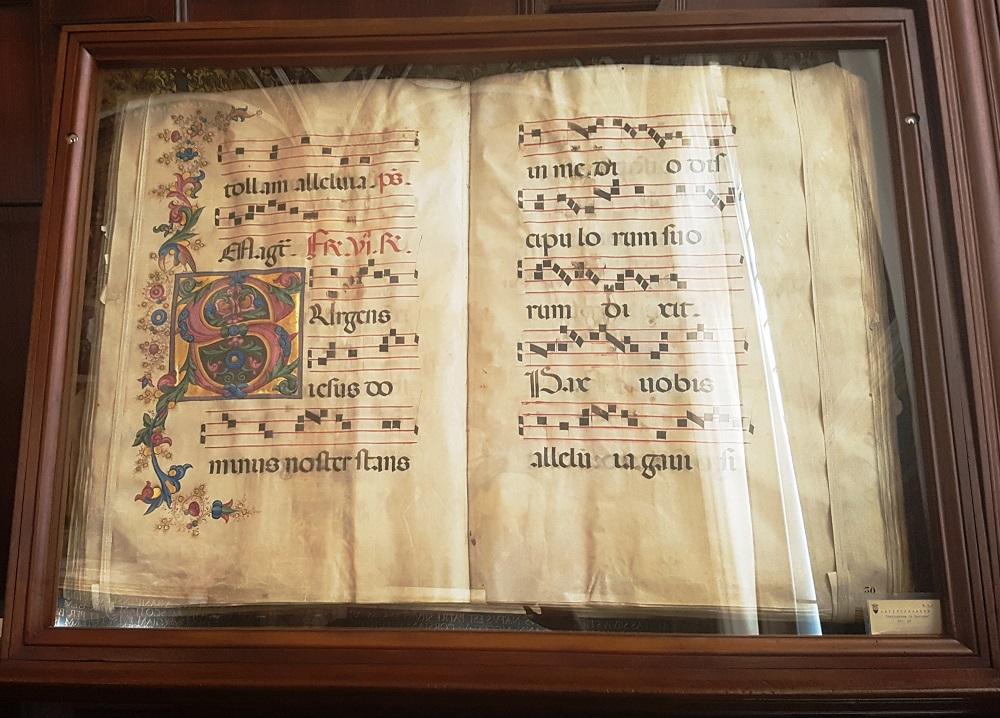 tollam alleluia. ps.
Magt. FR. VI. R.
S Urgens
iesus do
minus noster stans
in me di o dis
cipu lo rum suo
rum di xit.
Pax uobis
allelu ia gaui si
30